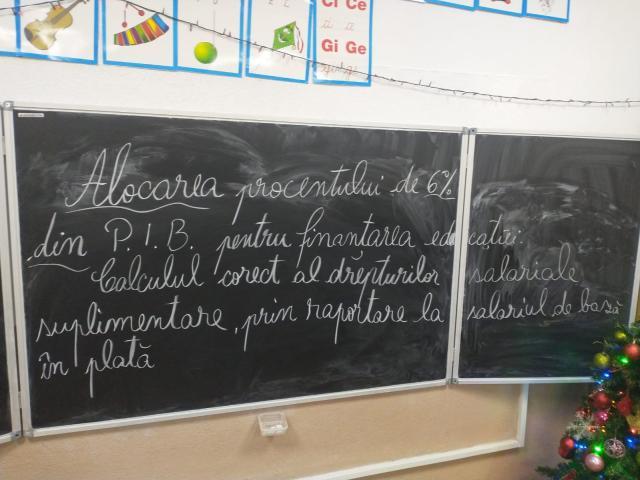 Ci Ce
Gi Ge
Alocarea procentului de 6%
din P.I.B. pentru finanțarea educației.
Calculul corect al drepturilor salariale
suplimentare, prin raportare la salariul de bază
în plată